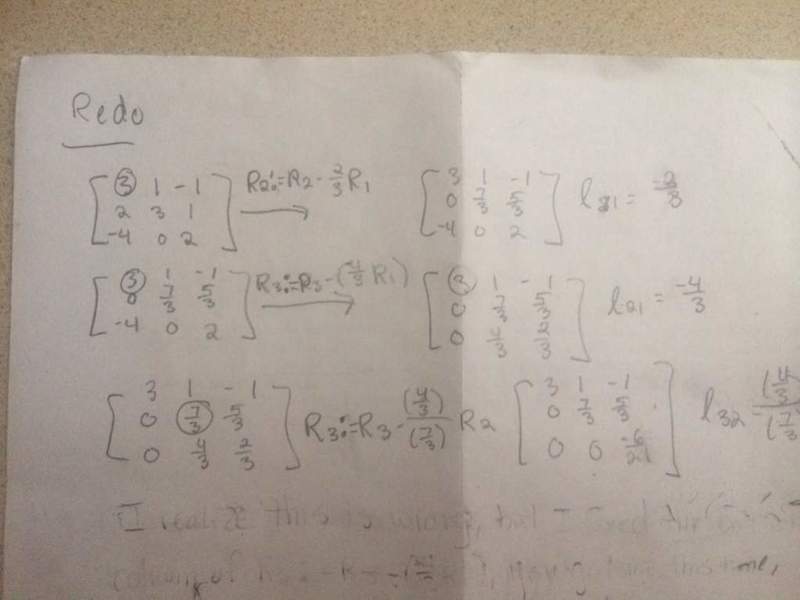 Redo
[3 1 -1; 2 3 1; -4 0 2] R2:=R2-2/3R1 → [3 1 -1; 0 7/3 5/3; -4 0 2]
[3 1 -1; 0 7/3 5/3; -4 0 2] R3:=R3-(-4/3 R1) → [3 1 -1; 0 7/3 5/3; 0 4/3 2/3] l21 = -4/3
[3 1 -1; 0 7/3 5/3; 0 4/3 2/3] R3:=R3-(4/3)/(7/3) R2 [3 1 -1; 0 7/3 5/3; 0 0 -6/21] l32 = (4/3)/(7/3)
I realize this is wrong, but I